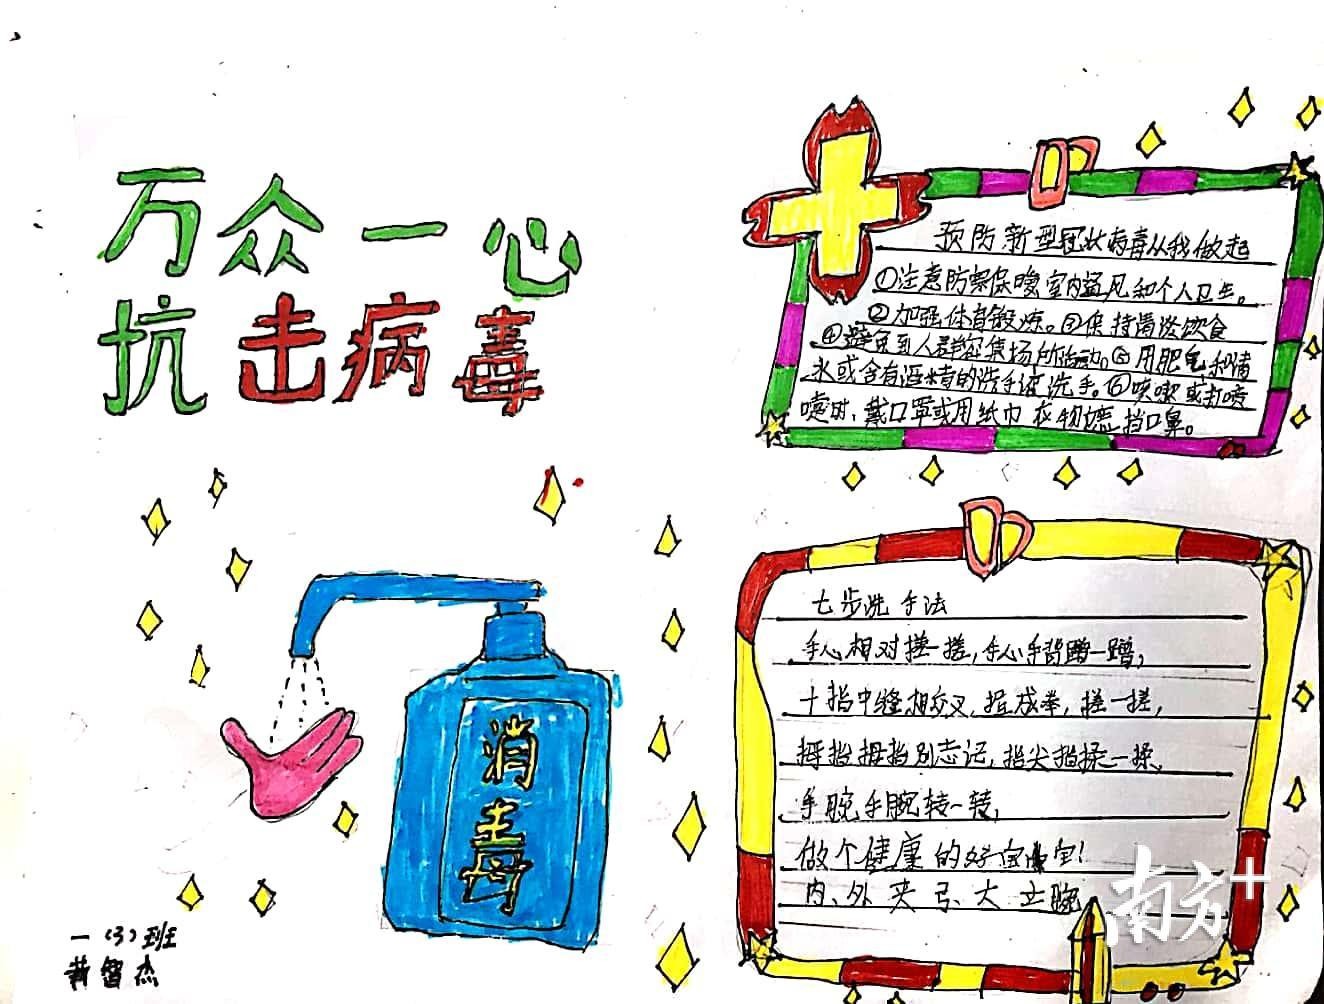 万众一心
抗击病毒
预防新型冠状病毒从我做起
①注意防寒保暖室内通风和个人卫生。
②加强体育锻炼。③保持清淡饮食
④避免到人群密集场所活动。⑤用肥皂和清
水或含有酒精的洗手液洗手。⑥咳嗽或打喷
嚏时、戴口罩或用纸巾衣物遮挡口鼻。
消毒
七步洗手法
手心相对搓一搓,手心手背蹭一蹭,
十指中缝相交叉,握成拳,搓一搓,
拇指拇指别忘记,指尖指揉一揉、
手腕手腕转一转,
做个健康的好宝宝!
内、外夹弓、大立腕
一(3)班
黄智杰
南方+